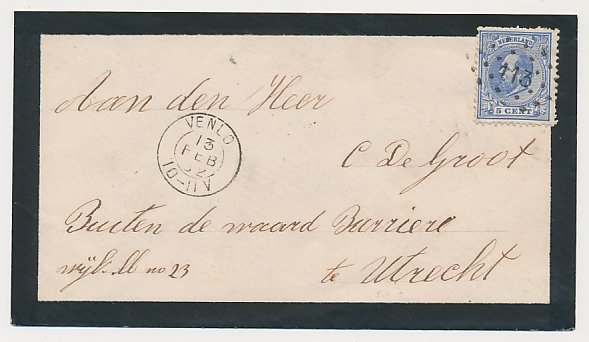 NEDERLAND
113
5 CENT
Aan den Heer
VENLO
13
FEB
82
10-11V
C De Groot
Buiten de waard Barriere
wijk M no 23
te Utrecht